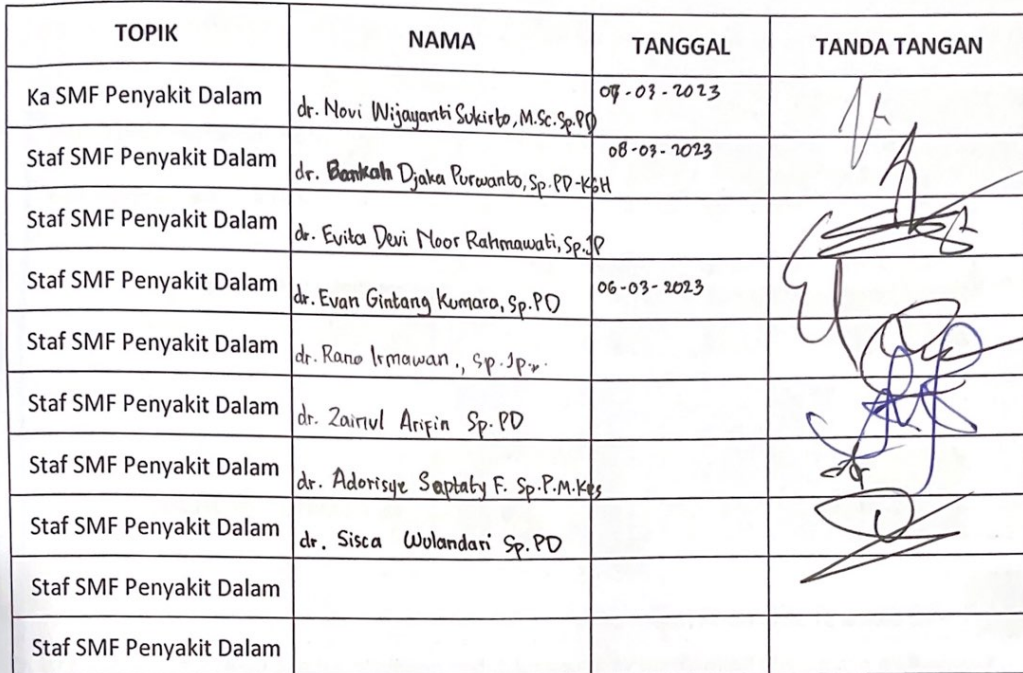 TOPIK NAMA TANGGAL TANDA TANGAN
Ka SMF Penyakit Dalam dr. Novi Wijayanti Sukirto, M.Sc. Sp.PD 07-03-2023
Staf SMF Penyakit Dalam dr. Bankah Djaka Purwanto, Sp.PD-KGH 08-03-2023
Staf SMF Penyakit Dalam dr. Evita Devi Noor Rahmawati, Sp.JP
Staf SMF Penyakit Dalam dr. Evan Gintang Kumara, Sp.PD 06-03-2023
Staf SMF Penyakit Dalam dr. Rano Irmawan., Sp.Jp..
Staf SMF Penyakit Dalam dr. Zainul Arifin Sp.PD
Staf SMF Penyakit Dalam dr. Adorisye Saptaty F. Sp.P.M.Kes
Staf SMF Penyakit Dalam dr. Sisca Wulandari Sp.PD
Staf SMF Penyakit Dalam
Staf SMF Penyakit Dalam